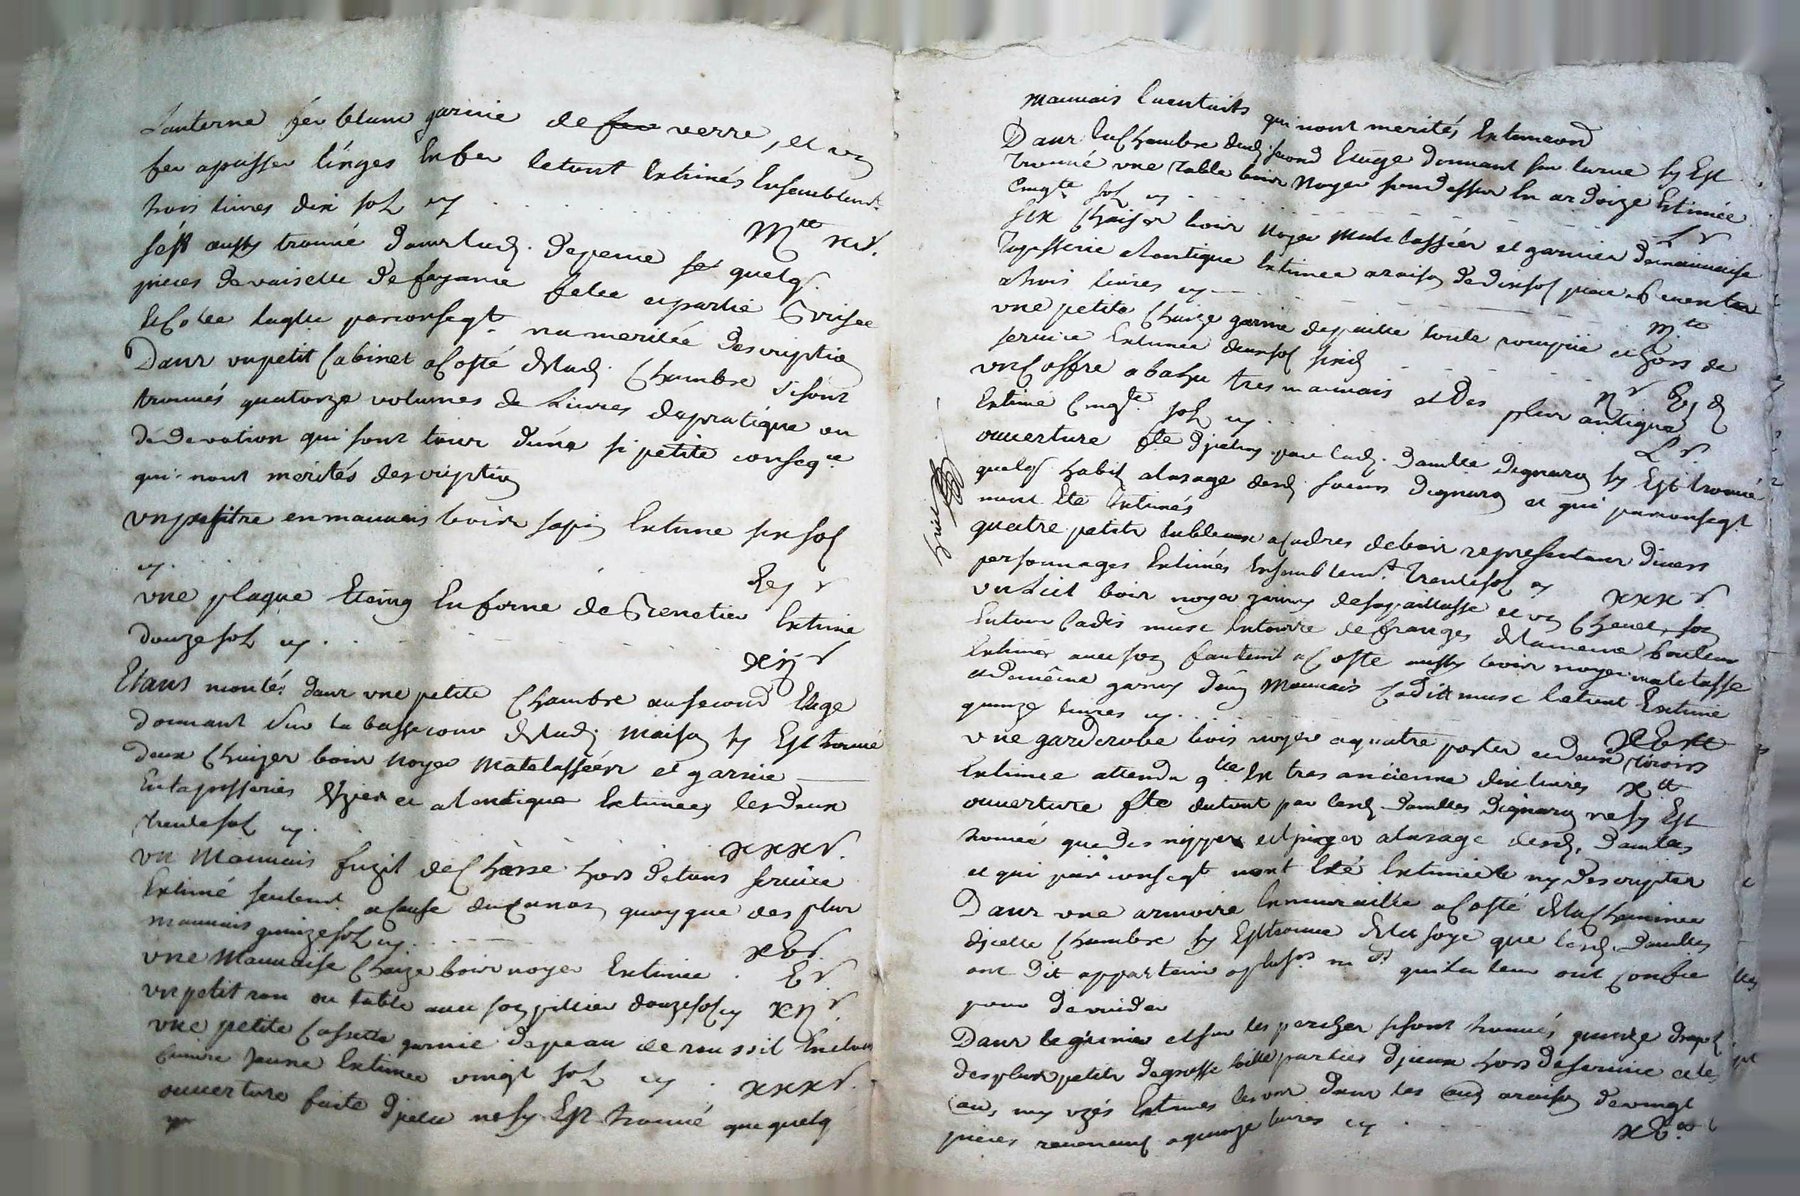 Lanterne fer blanc garnie de fer verre, et un
fer a passer linges en fer le tout Extimés Ensemblemt
trois livres dix sols cy
s'est aussy trouvé dans lad. depence quelqs
pieces de vaiselle de fayance felée et partie Brisée
laqlle par conseqt na meritée description
Dans un petit Cabinet a Costé de lad. Chambre sisont
trouvés quatorze volumes de Livres de pratique ou
de devotion qui sont tous d'une si petite conseqce
qui nont merités description
un pupitre en mauvais bois sapin Extimé six sols
cy.
une plaque Etaing en forme de Benetier Extimé
douze sols cy.
xij s
Etans montés dans une petite Chambre au second Etage
donnant sur la basse cour de lad. maison sy Est trouvé
deux Chaizes bois noyer matelassées et garnie
En tapisseries et a lantique Extimées les deux
trente sols cy.
xxx s.
un mauvais fuzil de Chasse hors detans service
Extimé seulemt a Cause du Canon, quoy que des plus
mauvais quinze sols cy
xv s.
une mauvaise Chaize bois noyer Extimée
v s
un petit ron ou table avec son pillier douze sols cy xij s
une petite Cassette garnie de peau de roussit Encloux
Cuivre jaune Extimée vingt sols cy
xxx s.
ouverture faite dicelle ne sy Est trouvé que quelq
mauvais qui nont merités Extimaon
Dans la Chambre dud. second Etage donnant sur la rue sy Est
trouvé une table bois noyer son dessus En ardoize Extimée
Cinqte sols cy
L s
six Chaises bois noyer matelassées et garnies de mauvaise
Tapisserie a lantique Extimée a raison de dix sols piece revenant
a trois livres cy
une petite Chaize garnie de paille toute rompüe et hors de
service Extimée deux sols six d
un Coffre a bahu tres mauvais et des plus antiques
Extimé Cinqte sols cy
L s.
ouverture fte dicelluy par lesd. Damlles Dignaron sy Est trouvé
quelqs habits a lusage desd. soeurs Dignaron et qui par conseqt
nont Eté Extimés
quatre petits tableaux a Cadres de bois representans divers
personnages Extimés Ensemblemt trente sols cy xxx s
un Lit bois noyer garny de sa paillasse et un Chevet, son
Entour Cadis musc Entourré de franges de la meme Couleur
Extimés avec son fauteuil a Costé aussy bois noyer matelassé
et de même garny d'un mauvais Cadis musc le tout Extimé
quinze livres cy
une garderobe bois noyer a quatre portes et deux tiroirs
Extimée attendu qlle Est tres ancienne dix livres xtt
ouverture fte dutout par lesd. Damlles Dignaron ne sy Est
trouvé que des nippes et linges a lusage desd. Damlles
et qui par conseqt nont Eté Extimée ny descriptes
Dans une armoire En muraille a Costé de la Cheminée
dicelle Chambre sy Est trouvé de la soye que lesd. Damlles
ont dit appartenir a plusrs md qui la leur ont confiée
pour devuider
Dans le grenier et sur les perches sisont trouvés quinze draps
des plus petits de grosse toille parties diceux hors de service et les
autres my uzés Extimés les uns dans les autres a raison de vingt
pieces revenant a quinze livres cy